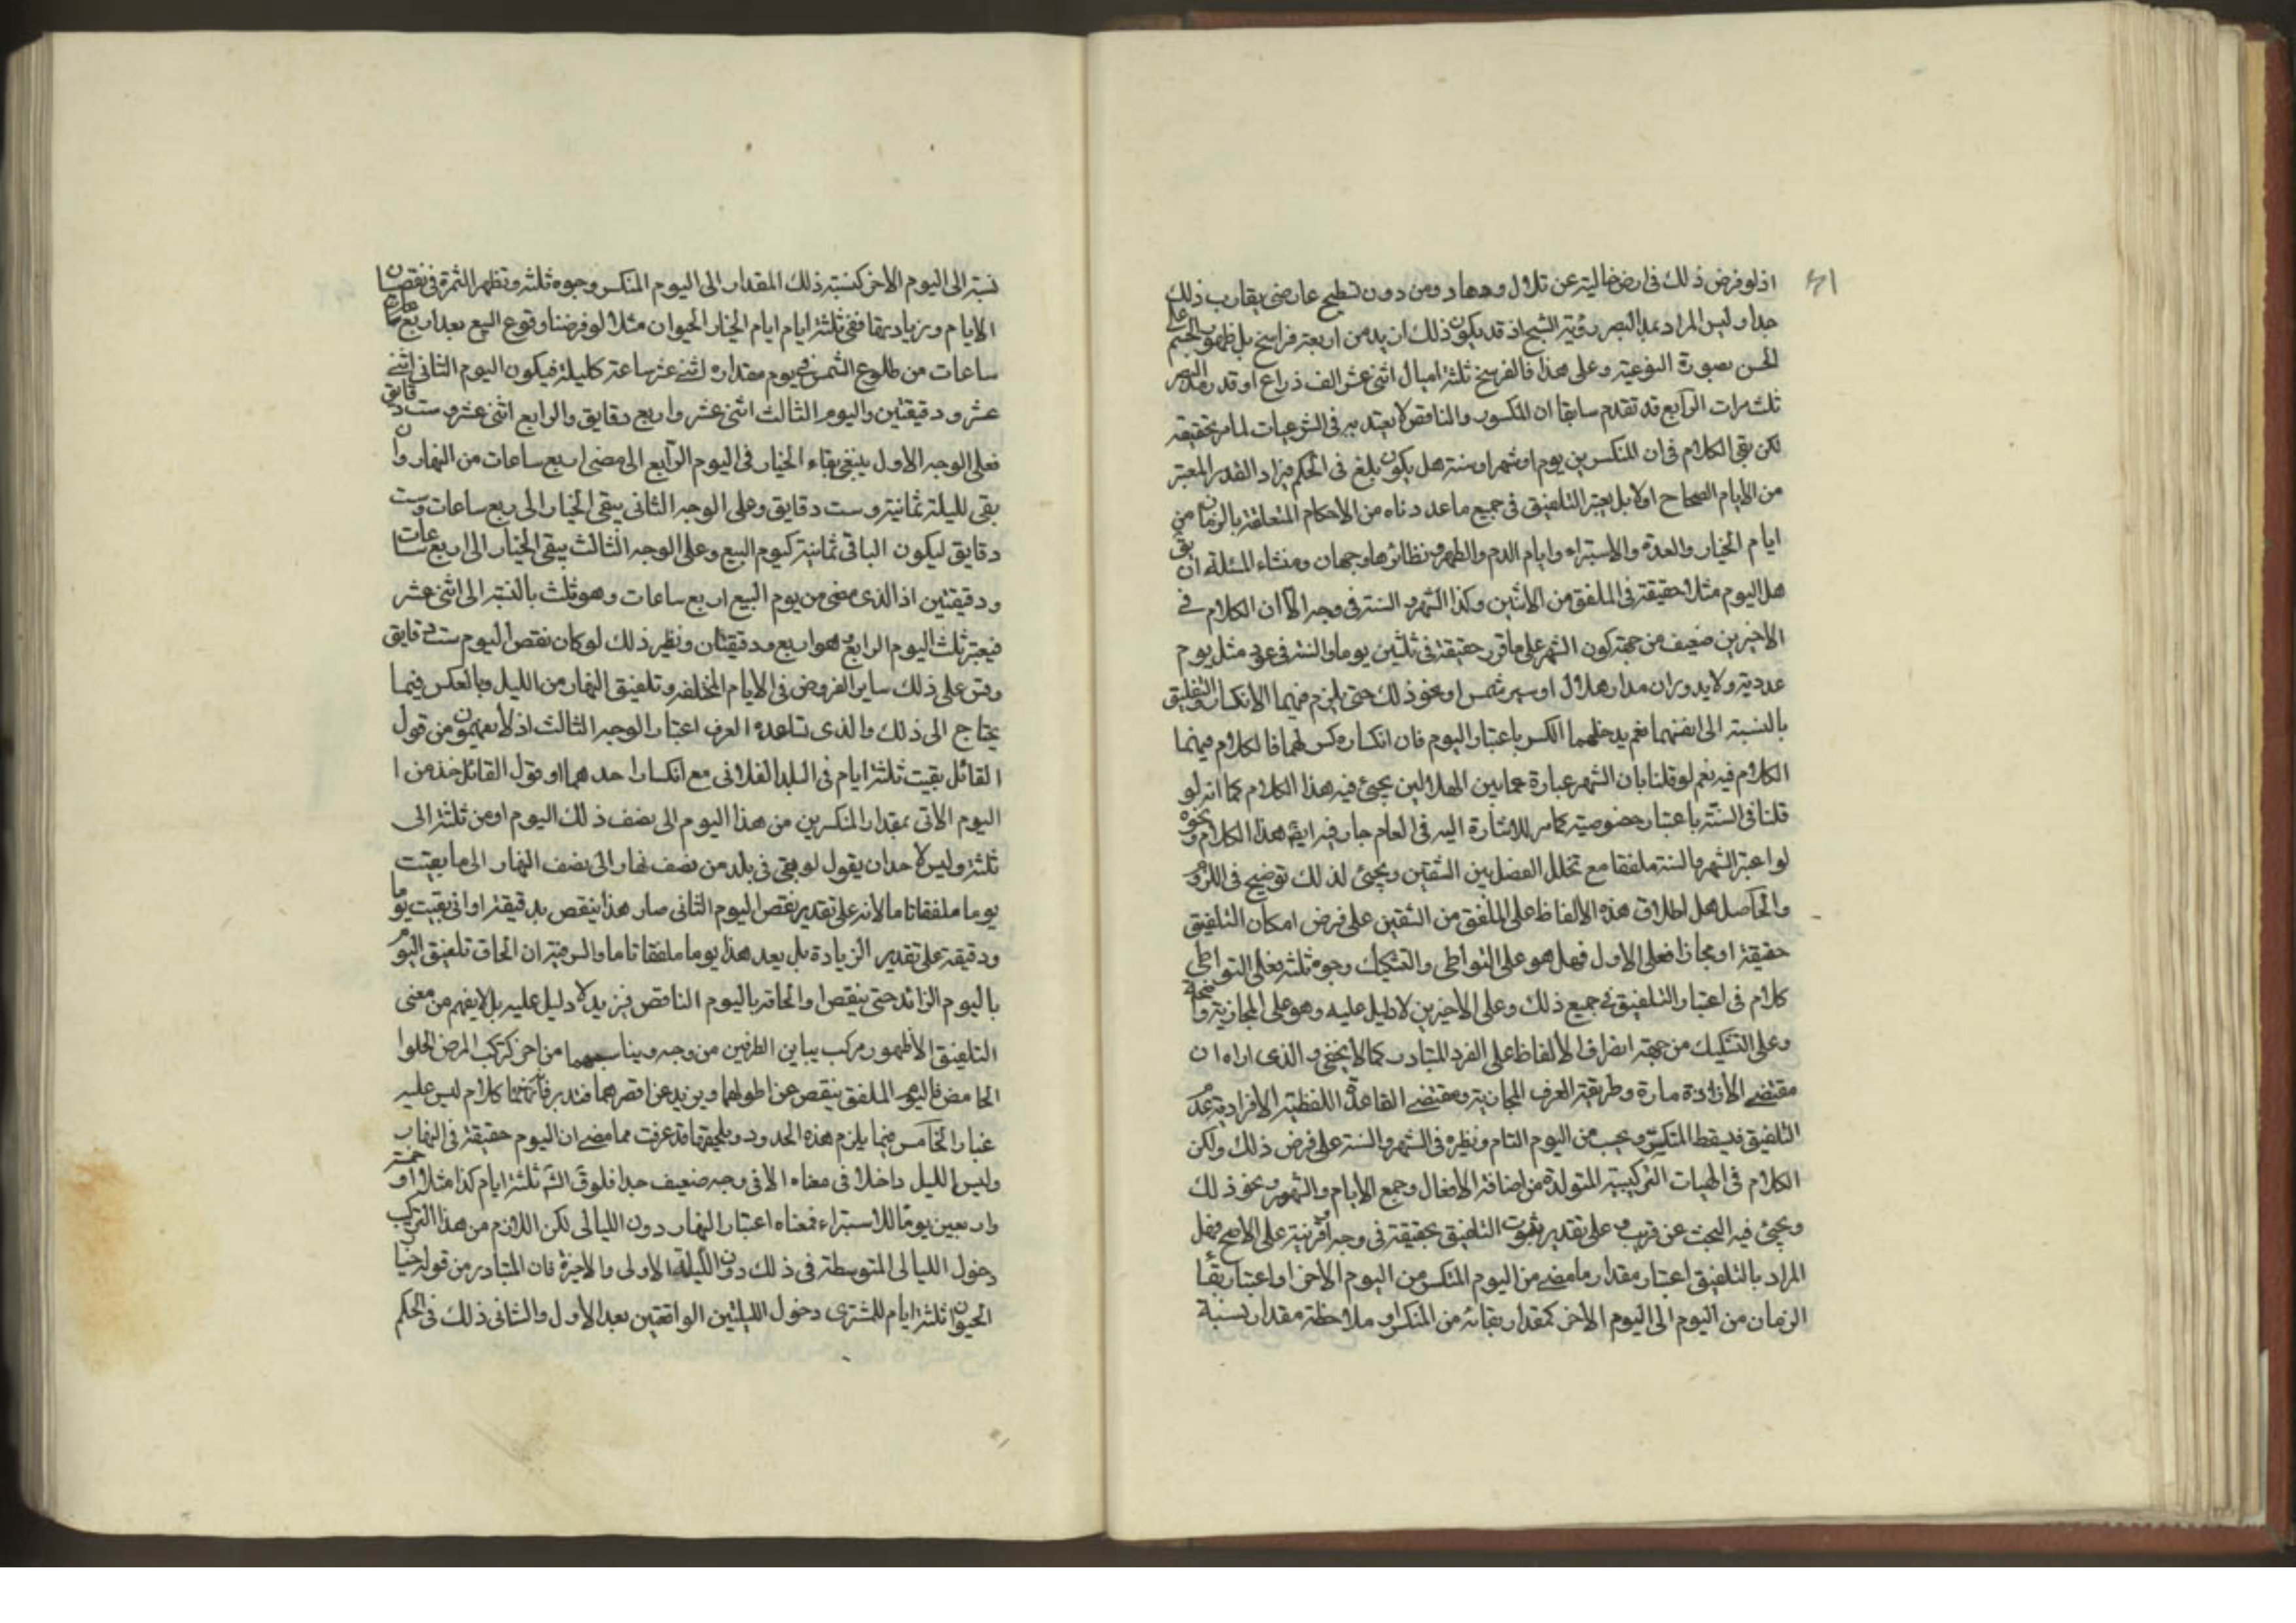 ٤١
اذ لو فرض ذلك فى ارض خالية عن تلال ووهاد ومن دون تسطيح عارضى يقارب ذلك
جدا وليس المراد بمد البصر رؤية الشبح اذ قد يكون ذلك ازيد من اربعة فراسخ بل ظهور الجسم على
الحس بصورة النوعية وعلى هذا فالفرسخ ثلثة اميال اثنى عشر الف ذراع او قدر مد البصر
ثلث مرات الرابع قد تقدم سابقا ان المكسور والناقص لا يعتد به فى الشرعيات لما مر تحقيقه
لكن بقى الكلام فى ان المنكسرين يوم او شهر او سنة هل يكون يلغى فى الحكم فيزاد القدر المعتبر
من الايام الصحاح اولا بل يعتبر التلفيق فى جميع ما عددناه من الاحكام المتعلقة بالزمان من
ايام الخيار والعدة والاستبراء وايام الدم والطهر ونظائرها وجهان ومنشاء المسئلة ان يق
هل اليوم مثلا حقيقة فى الملفق من الاثنين وكذا الشهر والسنة فى وجه الا ان الكلام فى
الاخيرين ضعيف من جهة كون الشهر على ما قرر حقيقة فى ثلثين يوما والسنة فى عرف مثل يوم
عددية ولا يدوران مدار هلال او سير شمس او نحو ذلك حتى يلزم فيهما الانكسار والتلفيق
بالنسبة الى انفسهما نعم يدخلهما الكسر باعتبار اليوم فان انكساره كسر لهما فالكلام فيهما
الكلام فيه نعم لو قلنا بان الشهر عبارة عما بين الهلالين يجيئ فيه هذا الكلام كما انه لو
قلنا فى السنة باعتبار خصوصية كما مر للاشارة اليه فى العام جار فيه ايضا هذا الكلام ونحوه
لو اعتبر الشهر والسنة ملفقا مع تخلل الفصل بين الشقين ويجيئ لذلك توضيح فى اللزوم
والحاصل هل اطلاق هذه الالفاظ على الملفق من الشقين على فرض امكان التلفيق
حقيقة او مجاز فعلى الاول فهل هو على التواطى والتشكيك وجوه ثلثة فعلى التواطى
كلام فى اعتبار التلفيق فى جميع ذلك وعلى الاخيرين لا دليل عليه وهو على المجازية واضحة
وعلى التشكيك من جهة انصراف الالفاظ على الفرد المتبادر كما لا يخفى والذى اراه ان
مقتضى الارادة مارة وطريقة العرف المجازية ومقتضى القاعدة اللفظية الافرادية عدم
التلفيق فيسقط المنكسر ويحسب من اليوم التام ونظيره فى الشهر والسنة على فرض ذلك ولكن
الكلام فى الهيئات التركيبية المتولدة من اضافة الافعال وجمع الايام والشهور ونحو ذلك
ويجيئ فيه البحث عن قريب وعلى تقدير ثبوت التلفيق بحقيقة فى وجه او قرينة على الاصح فهل
المراد بالتلفيق اعتبار مقدار ما مضى من اليوم المنكسر من اليوم الاخر او اعتبار بقأ
الزمان من اليوم الى اليوم الاخر كمقدار بقائه من المنكسر او ملاحظة مقدار نسبة
نسبته الى اليوم الاخر كنسبة ذلك المقدار الى اليوم المنكسر وجوه ثلثة وتظهر الثمرة فى نقصان
الايام وزيادتها ففى ثلثة ايام ايام الخيار الحيوان مثلا لو فرضنا وقوع البيع بعد اربع
ساعات من طلوع الشمس فى يوم مقداره اثنى عشر ساعة كاليلة فيكون اليوم الثانى اثنى
عشر ودقيقتين واليوم الثالث اثنى عشر واربع دقايق والرابع اثنى عشر وست دقايق
فعلى الوجه الاول ينبغى بقاء الخيار فى اليوم الرابع الى مضى اربع ساعات من النهار وان
بقى لليلة ثمانية وست دقايق وعلى الوجه الثانى يبقى الخيار الى ربع ساعات وست
دقايق ليكون الباقى ثمانية كيوم البيع وعلى الوجه الثالث يبقى الخيار الى اربع ساعات
ودقيقتين اذ الذى مضى من يوم البيع اربع ساعات وهو ثلث بالنسبة الى اثنى عشر
فيعتبر ثلث اليوم الرابع وهو اربع ودقيقتان ونظير ذلك لو كان نقص اليوم ست دقايق
وقس على ذلك ساير الفروض فى الايام المختلفة وتلفيق النهار من الليل وبالعكس فيما
يحتاج الى ذلك والذى تساعده العرف اعتبار الوجه الثالث اذ لا يفهمون من قول
القائل بقيت ثلثة ايام فى البلد الفلانى مع انكسار احدهما او قول القائل خذ من ا
اليوم الاتى بمقدار المنكسرين من هذا اليوم الى نصف ذلك اليوم او من ثلثة الى
ثلثة وليس لاحد ان يقول لو بقى فى بلد من نصف نهار الى نصف النهار الى ما بقيت
يوما ملفقا تاما لانه على تقدير نقص اليوم الثانى صار هذا ينقص بدقيقة او انى بقيت يوما
ودقيقة على تقدير الزيادة بل يعد هذا يوما ملفقا تاما والسر فيه ان الحاق تلفيق اليوم
باليوم الزائد حتى ينقص او الحاقه باليوم الناقص فيزيد لا دليل عليه بل لا يفهم من معنى
التلفيق الا ظهور مركب يباين الطرفين من وجه ويناسبهما من اخر كتركب المرض الحلوا
الحامض فاليوم الملفق ينقص عن اطولهما ويزيد عن اقصرهما فتدبر فانها كلام ليس عليه
غبار الخامس فيما يلزم هذه الحدود ويلحقها قد عرفت مما مضى ان اليوم حقيقة فى النهار
وليس الليل داخلا فى معناه الا فى وجه ضعيف جدا فلو ق الش ثلثة ايام كذا مثلا او خمسة
واربعين يوما للاستبراء فمعناه اعتبار النهار دون الليالى لكن اللازم من هذا التركيب
دخول الليالى المتوسطة فى ذلك دون الليلة الاولى والاخيرة فان المتبادر من قوله خيا
الحيوان ثلثة ايام للمشترى دخول الليلتين الواقعتين بعد الاول والثانى ذلك فى الحكم